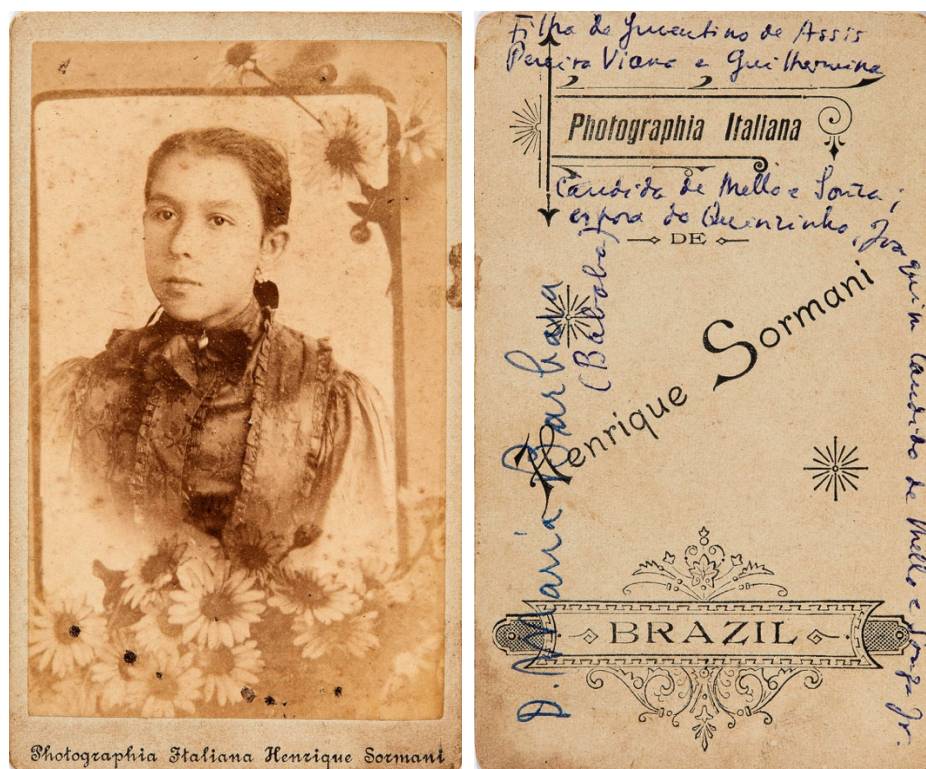 Photographia Italiana Henrique Sormani
Filha de Juventino de Assis
Pereira Viana e Guilhermina
Photographia Italiana
Candida de Mello e Souza;
esposa do Quinzinho, Joaquim Candido de Mello e Souza Jr.
DE
Henrique Sormani
D. Maria Barbara
(Babá)
BRAZIL